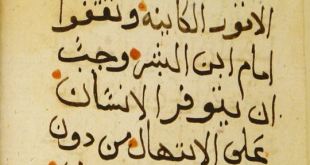 الامور الكاينه وتقفوا
امام ابن البشر وجب
ان يتوفر الانسان
على الابتهال من دون